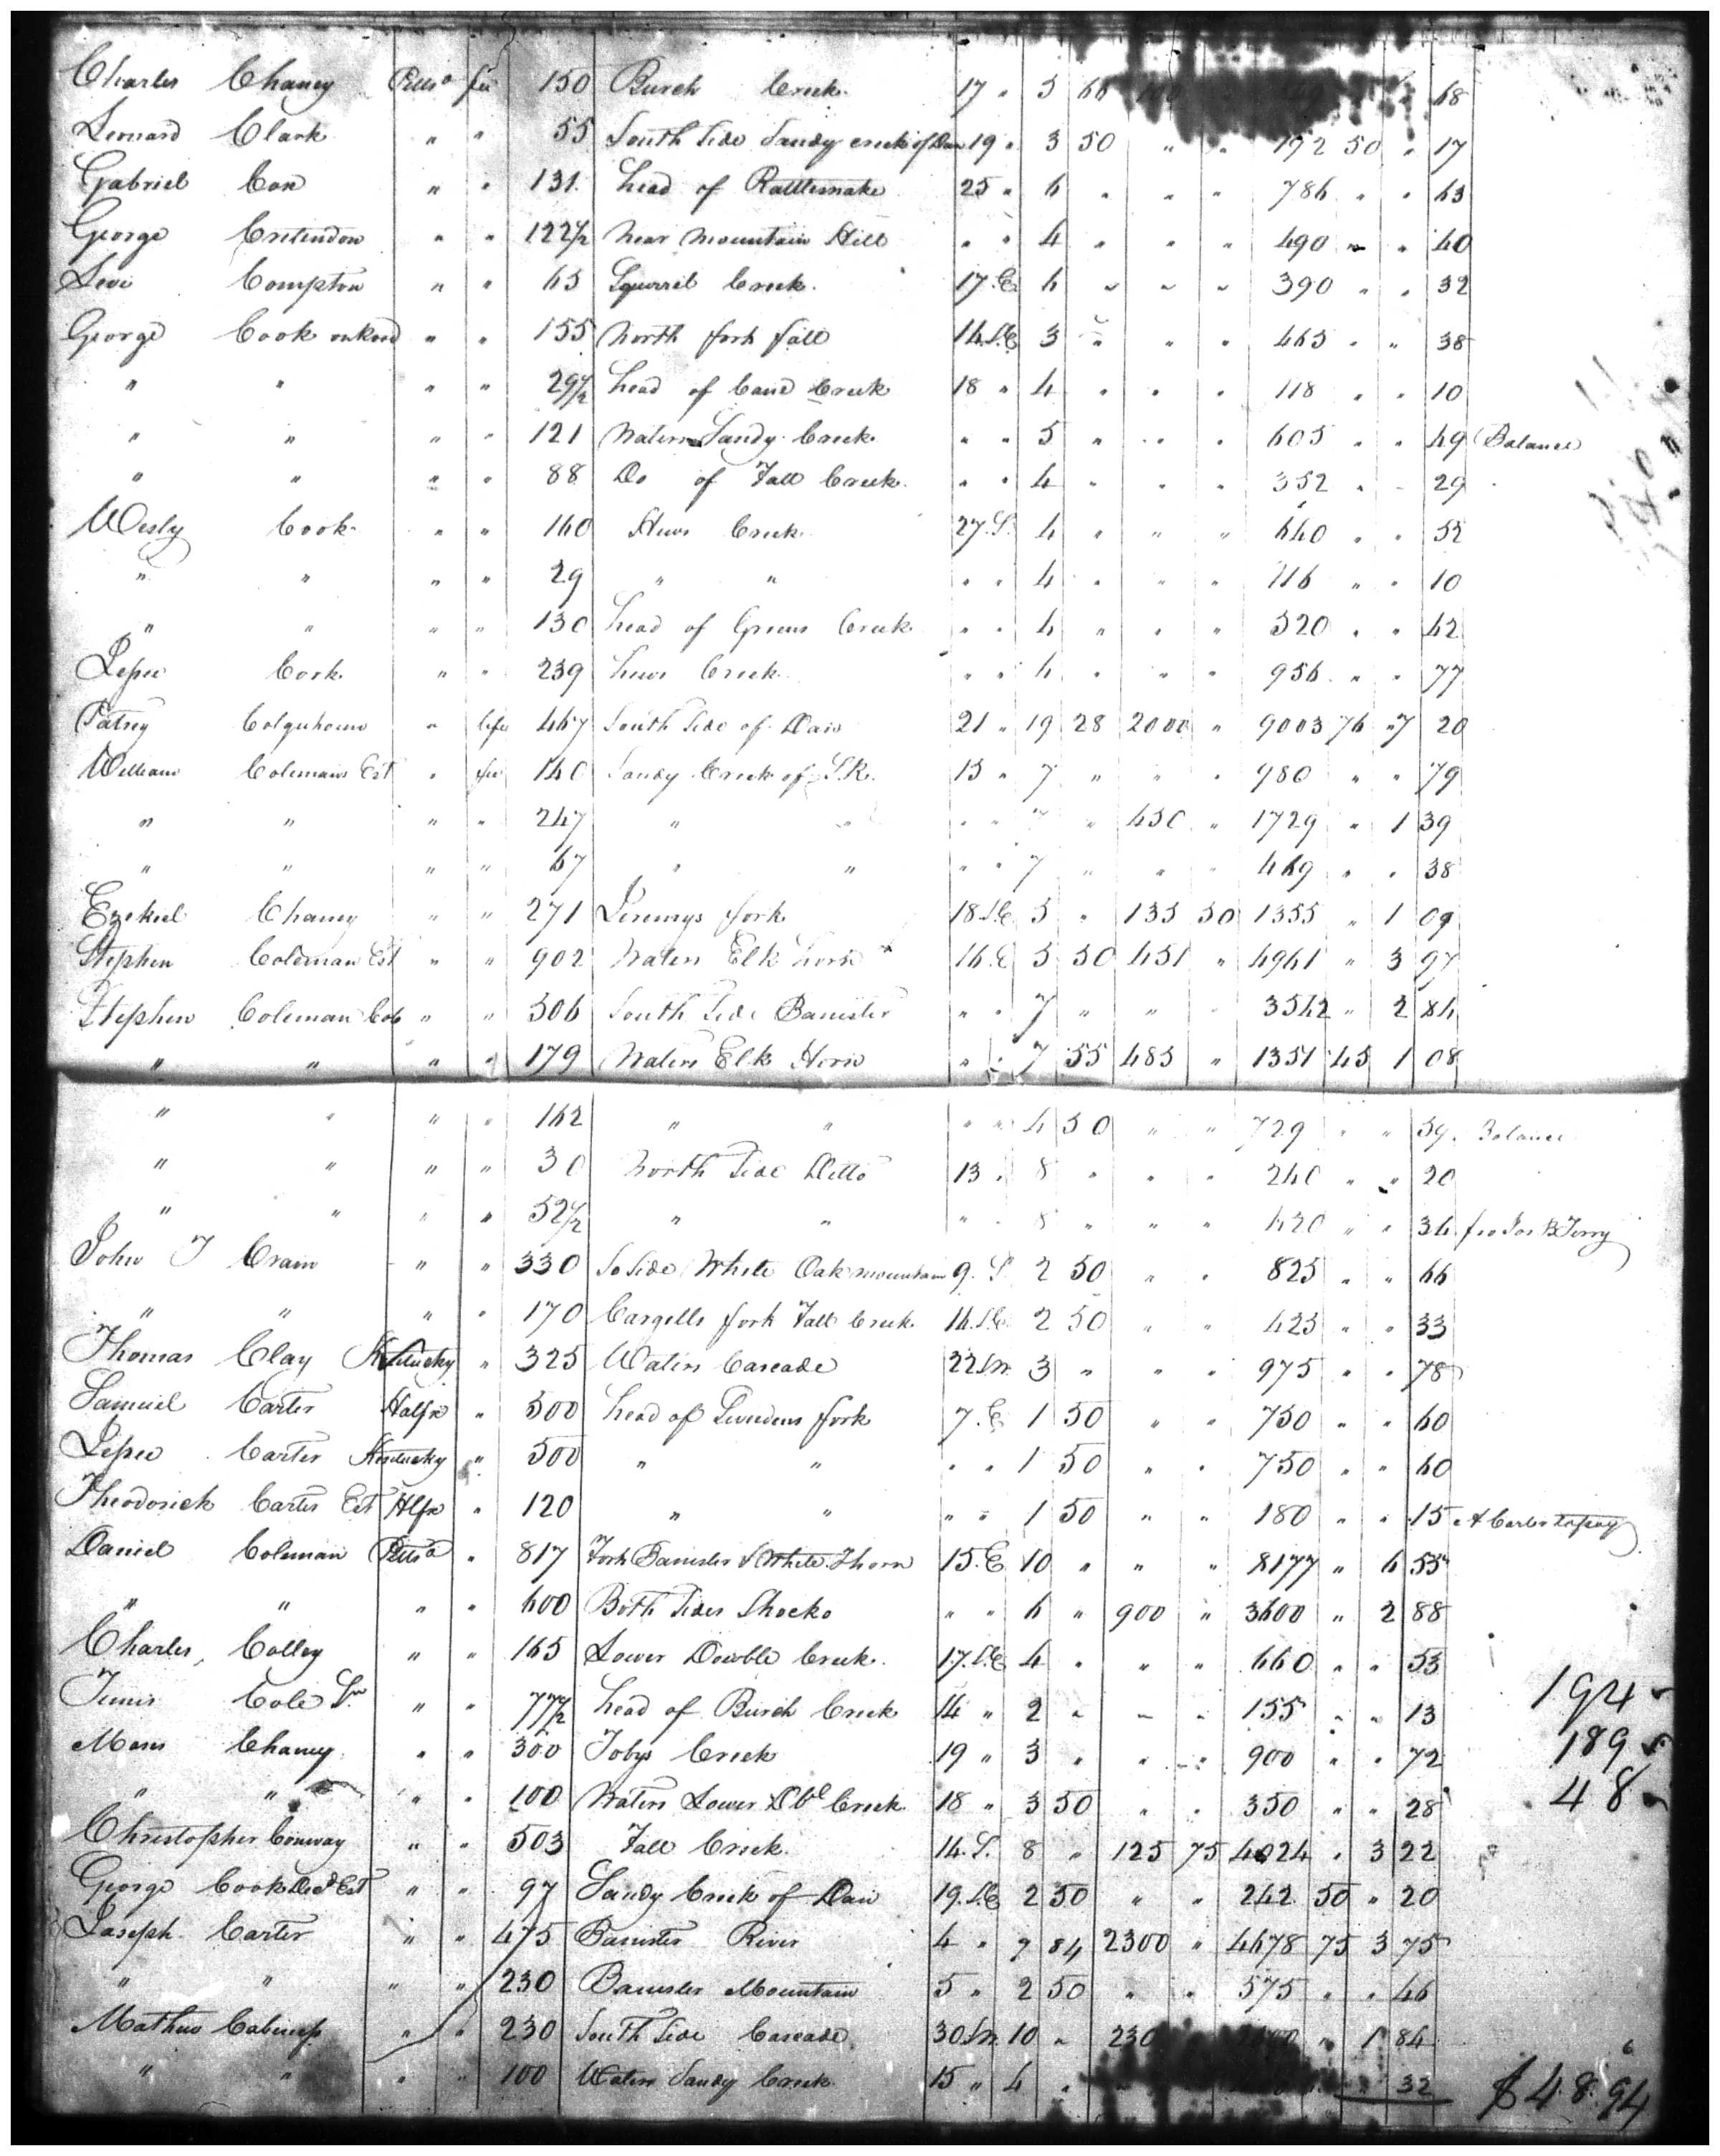 Charles Chaney Pittsa fee 150 Burch Creek 17 " 5 66 68
Leonard Clark " " 55 South Side Sandy creek of Dan 19 " 3 50 " " 192 50 " 17
Gabriel Cox " " 131 head of Rattlesnake 25 " 6 " " " 786 " " 63
George Critendon " " 122½ near mountain Hill " " 4 " " " 490 " " 40
Levi Compton " " 65 Squirril Creek 17.E 6 " " " 390 " " 32
George Cook " " 155 North fork fall 14.S.E 3 " " " 465 " " 38
" " " " 29½ head of Cane Creek 18 " 4 " " " 118 " " 10
" " " " 121 Waters Sandy Creek " " 5 " " " 605 " " 49 Balance
" " " " 88 Do of Fall Creek " " 4 " " " 352 " " 29
Wesly Cook " " 160 Hews Creek 27.S. 4 " " " 640 " " 52
" " " " 29 " " " " 4 " " " 116 " " 10
" " " " 130 head of Greens Creek " " 4 " " " 520 " " 42
Jesse Cook " " 239 hews Creek " " 4 " " " 956 " " 77
Patsey Colquhoun " life 467 South Side of Dan 21 " 19 28 2000 " 9003 76 " 7 20
William Colemans Est " fee 140 Sandy Creek of S.R. 13 " 7 " " " 980 " " 79
" " " " 247 " " " " 7 " 450 " 1729 " 1 39
" " " " 67 " " " " 7 " " " 469 " " 38
Ezekiel Chaney " " 271 Jeremys fork 18 S.E 5 " 135 50 1355 " 1 09
Stephen Coleman Est " " 902 Waters Elk horn 16.E 5 50 451 " 4961 " 3 97
Stephen Coleman " " 506 South Side Banister " " 7 " " " 3542 " 2 84
" " " " 179 Waters Elk Horn " " 7 55 485 " 1351 45 1 08
" " " " 162 " " " " 4 50 " " 729 " " 59 Balance
" " " " 30 North Side Ditto 13 " 8 " " " 240 " " 20
" " " " 52½ " " " " 8 " " " 420 " " 34 Terry
John T Crain " " 330 So Side White Oak mountain 9. S 2 50 " " 825 " " 66
" " " " 170 Cargills fork Fall Creek 14.S.E 2 50 " " 425 " " 33
Thomas Clay Kentucky " 325 Waters Cascade 22 S.W. 3 " " " 975 " " 78
Samuel Carter Halfx " 500 head of fork 7.E 1 50 " " 750 " " 60
Jesse Carter Kentucky " 500 " " " " 1 50 " " 750 " " 60
Theodorick Carter Est Hlfx " 120 " " " " 1 50 " " 180 " " 15 A Carter to pay
Daniel Coleman Pittsa " 817 Fork Banister & White Thorn 15.E 10 " " " 8177 " 6 55
" " " " 600 Both Sides Shocko " " 6 " 900 " 3600 " 2 88
Charles Colley " " 165 Lower Double Creek 17.S.E 4 " " " 660 " " 53
Cole Sr " " 77½ head of Burch Creek 14 " 2 " " " 155 " " 13 194
Moses Chaney " " 300 Tobys Creek 19 " 3 " " " 900 " " 72 189
" " " " 100 Waters Lower Dbl Creek 18 " 3 50 " " 350 " " 28 48
Christopher Conway " " 503 Fall Creek 14.S. 8 " 125 75 4024 " 3 22
George Cook Decd Est " " 97 Sandy Creek of Dan 19.S.E 2 50 " " 242 50 " 20
Joseph Carter " " 475 Banister River 4 " 9 84 2300 " 4678 75 3 75
" " " " 230 Banister Mountain 5 " 2 50 " " 575 " " 46
Mathew Cabiness " " 230 South Side Cascade 30 S.W. 10 " 230 " 1 84
" " " " 100 Waters Sandy Creek 15 " 4 " 32 $48.94